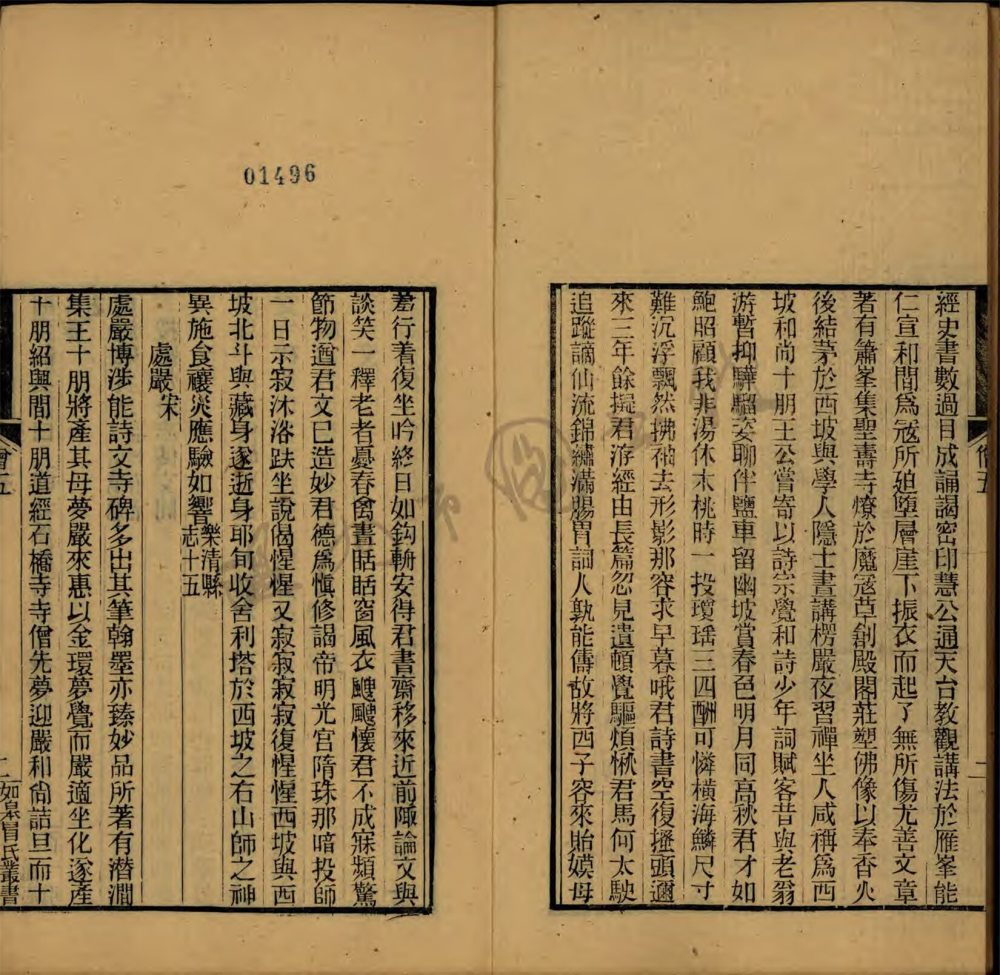 經史書數過目成誦謁密印慧公通天台教觀講法於雁峯能
仁宣和間爲寇所廹墮層崖下振衣而起了無所傷尤善文章
著有簫峯集聖壽寺燎於魔寇草創殿閣莊塑佛像以奉香火
後結茅於西坡與學人隱士晝講楞嚴夜習禪坐人咸稱爲西
坡和尚十朋王公嘗寄以詩宗覺和詩少年詞賦客昔與老翁
游暫抑驊騮姿聊伴鹽車留幽坡賞春色明月同高秋君才如
鮑照顧我非湯休木桃時一投瓊瑤三四酬可憐橫海鱗尺寸
難沉浮飄然拂袖去形影那容求早暮哦君詩書空復搔頭邇
來三年餘擬君游經由長篇忽見遺頓覺驅煩愀君馬何太駛
追蹤謫仙流錦繡滿腸胃詞人孰能儔故將西子容來貽嫫母
僧五
二
羞行着復坐吟終日如鈎輈安得君書齋移來近前陬論文與
談笑一釋老者憂春禽晝聒聒窗風衣颼颼懷君不成寐頻驚
節物遒君文已造妙君德爲愼修謁帝明光宮隋珠那暗投師
一日示寂沐浴趺坐說偈惺惺又寂寂寂寂復惺惺西坡與西
坡北斗與藏身遂逝身耶旬收舍利塔於西坡之右山師之神
異施食禳災應驗如響樂清縣志十五
處嚴宋
處嚴博涉能詩文寺碑多出其筆翰墨亦臻妙品所著有潛澗
集王十朋將產其母夢嚴來惠以金環夢覺而嚴適坐化遂產
十朋紹興間十朋道經石橋寺寺僧先夢迎嚴和尙詰旦而十
僧五
二
如皋冒氏叢書
01496